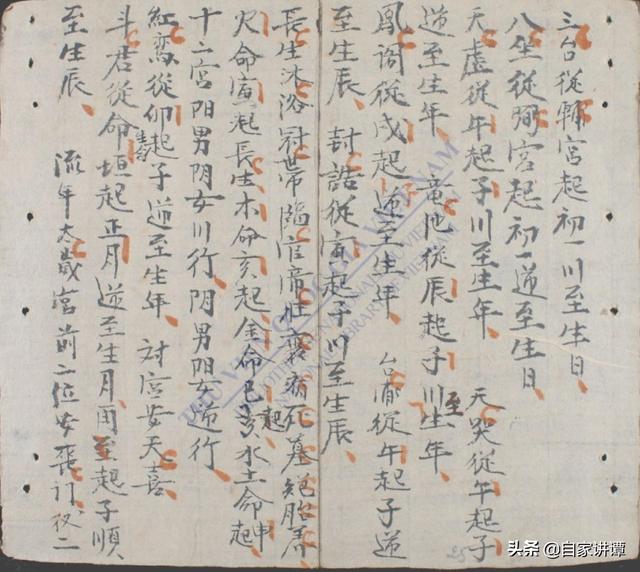 三台從輔宮起初一川至生日
八坐從弼宮起初一逆至生日
天虛從午起子川至生年 天哭從午起子
逆至生年 竜池從辰起子川至生年
鳳閣從戌起子逆至生年 台甫從午起子逆
至生辰 封誥從寅起子川至生辰
長生沐浴冠帶臨官帝旺衰病死墓絕胎養
火命寅起長生木命亥起金命巳起水土命申起
十二宮阳男阴女川行阴男阳女逆行
紅鸞從卯起子逆至生年 対宮安天喜
斗君從命垣起正月逆至生月 起子順
至生辰 流年太歲宮前二位安喪门 二
THƯ VIỆN QUỐC GIA VIỆT NAM
NATIONAL LIBRARY OF VIETNAM
25
头条 @自家讲谭